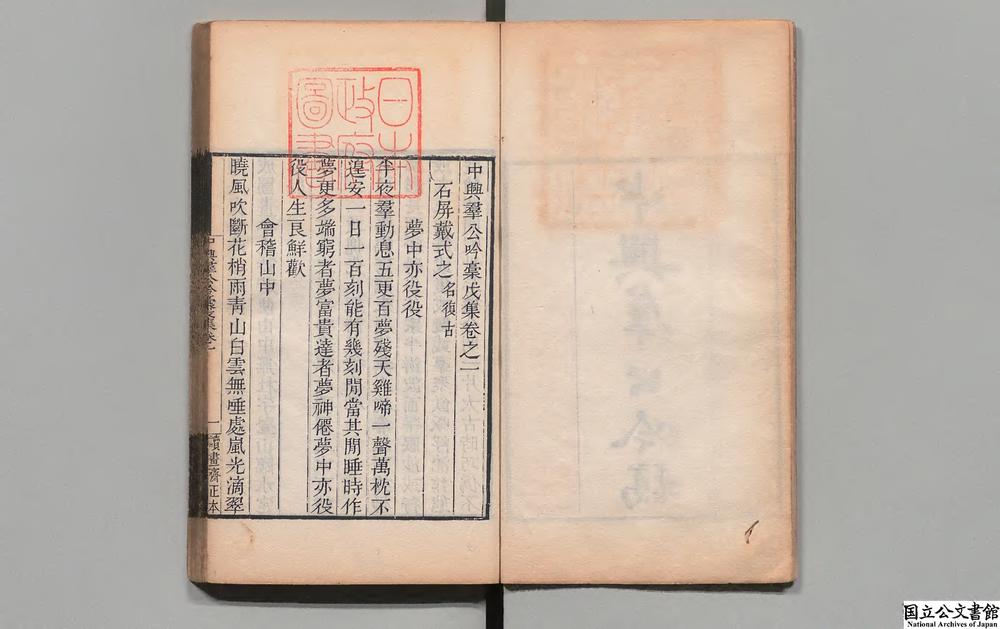 中興羣公吟稾戊集卷之二
石屏戴式之名復古
夢中亦役役
半夜羣動息五更百夢殘天雞啼一聲萬枕不
遑安一日一百刻能有幾刻閒當其閒睡時作
夢更多端窮者夢富貴達者夢神僊夢中亦役
役人生良鮮歡
會稽山中
曉風吹斷花梢雨青山白雲無唾處嵐光滴翠
讀畫齋正本
日本
政府
圖書
国立公文書館
National Archives of Japan